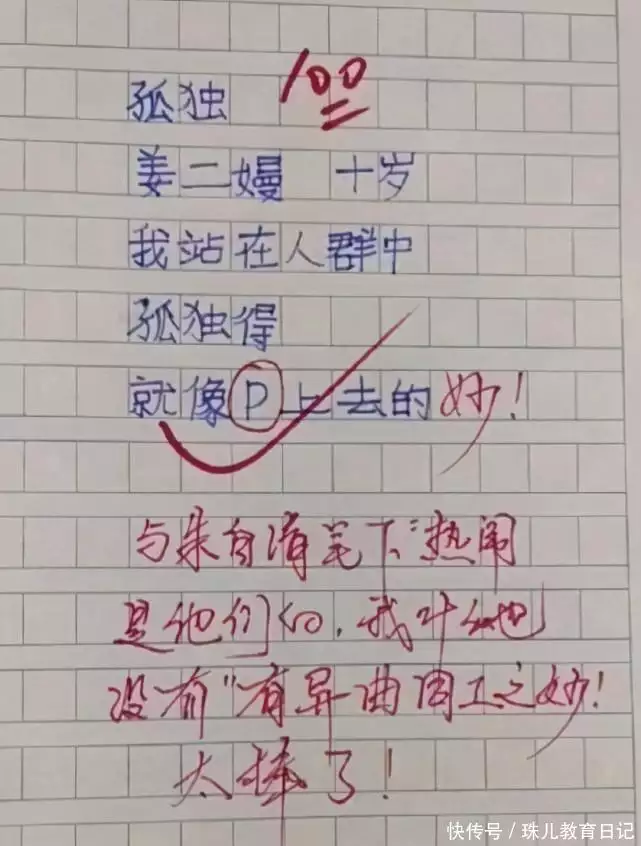 孤独 100
姜二嫚 十岁
我站在人群中
孤独得
就像P上去的 妙!
与朱自清笔下“热闹
是他们的,我什么也
没有”有异曲同工之妙!
太棒了!
快传号/珠儿教育日记